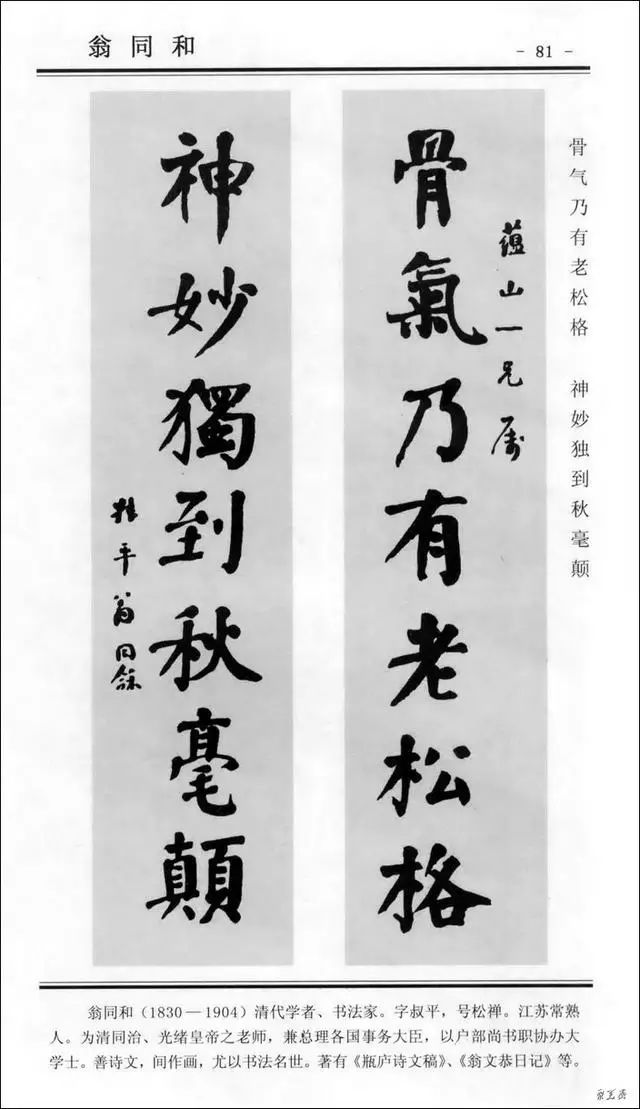 翁同和
- 81 -
骨气乃有老松格　神妙独到秋毫颠
蕴山一兄属
骨氣乃有老松格
神妙獨到秋毫顛
叔平翁同龢
翁同和（1830—1904）清代学者、书法家。字叔平，号松禅。江苏常熟
人。为清同治、光绪皇帝之老师，兼总理各国事务大臣，以户部尚书职协办大
学士。善诗文，间作画，尤以书法名世。著有《瓶庐诗文稿》、《翁文恭日记》等。